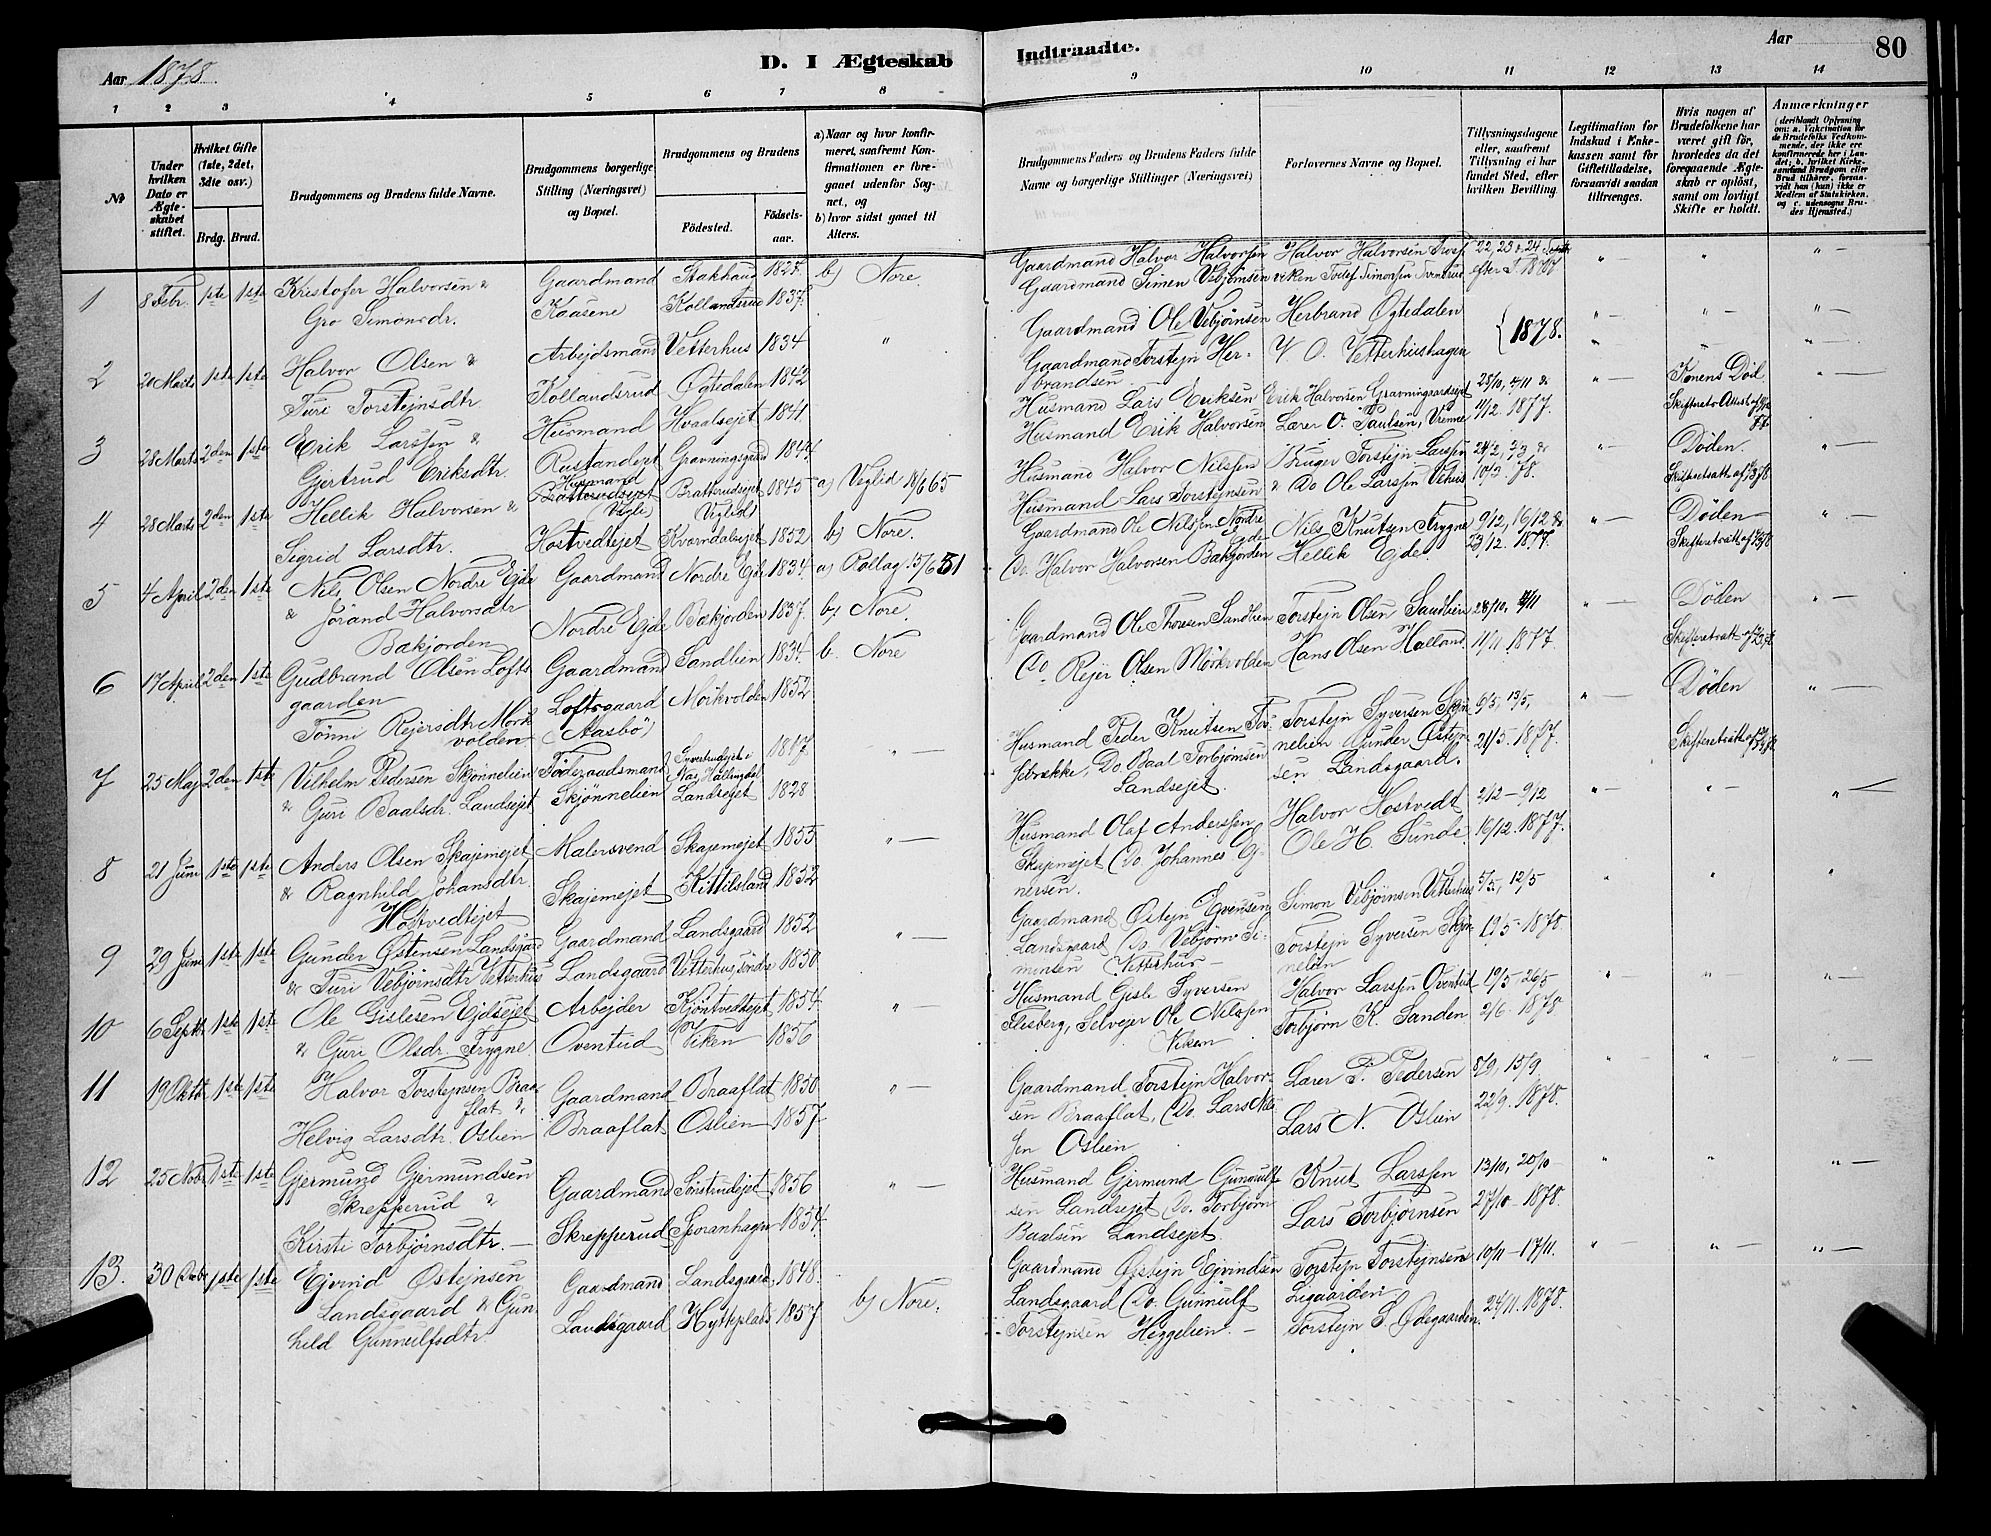 Aar 1878.
D. I Ægteskab
Indtraadte.
Aar
80
1 2 3 4 5 6 7 8
9 10 11 12 13 14
№
Under hvilken Dato er Ægteskabet stiftet.
Hvilket Gifte (1ste, 2det, 3dte osv.)
Brdg. Brud.
Brudgommens og Brudens fulde Navne.
Brudgommens borgerlige Stilling (Næringsvei) og Bopæl.
Brudgommens og Brudens
Födested.
Födsels-aar.
a) Naar og hvor konfirmeret, saafremt Konfirmationen er foregaaet udenfor Sognet, og
b) hvor sidst gaaet til Alters.
Brudgommens Faders og Brudens Faders fulde Navne og borgerlige Stillinger (Næringsvei)
Forlovernes Navne og Bopæl.
Tillysningsdagene eller, saafremt Tillysning ei har fundet Sted, efter hvilken Bevilling.
Legitimation for Indskud i Enkekassen samt for Giftetilladelse, forsaavidt saadan tiltrænges.
Hvis nogen af Brudefolkene har været gift för, hvorledes da det foregaaende Ægteskab er oplöst, samt om lovligt Skifte er holdt.
Anmærkninger
(deriblandt Oplysning om: a. Vakcination for de Brudefolks Vedkommende, der ikke ere konfirmerede her i Landet, b. hvilket Kirkesamfund Brudgom eller Brud tilhører, forsavidt han (hun) ikke er Medlem af Statskirken, og c. udensogns Brudes Hjemsted.)
1 8 Febr. 1ste 1ste Kristofer Halvorsen &
Gro Simonsdr.
Gaardmand Kaasene
Stakhaug 1825.
Kollandsrud 1837.
b) Nore.
Gaardmand Halvor Halvorsen
Gaardmand Simen Vebjørnsen
2 20 Marts 1ste 1ste Halvor Olsen &
Turi Torstejnsdtr.
Arbejdsmand Kollandsrud
Vetterhus 1834
Øgtedalen 1842
"
Gaardmand Ole Vebjørnsen
Gaardmand Torstejn Herbrandsen
Herbrand Øgtedalen
V O. Vetterhushagen
1878.
3 28 Marts 2den 1ste Erik Larssen &
Gjertrud Eriksdtr.
Husmand Rustandejet
Hvaalsejet 1841.
Gravningsgaard 1844
Husmand Lars Eriksen
Husmand Erik Halvorsen
Erik Halvorsen Gravningsaardsejet
Lærer O. Paulsen,
28/10, 4/11 &
11/12. 1877.
Konens Död
4 28 Marts 2den 1ste Hellik Halvorsen &
Sigrid Larsdtr.
Husmand
Bratterudsejet (Vegli)
Hostvedtejet
Bratterudsejet 1845
Kvorndalsejet 1852
a) Veglid 18/6 65
b) Nore.
Husmand Halvor Nilssen
Husmand Lars Torstejnsen
Bruger Torstejn Larssen
& Do Ole Larssen
24/2, 3/3 &
10/3. 78.
Døden.
5 4 April 2den 1ste Nils Olsen Nordre Ejde
& Jørand Halvorsdtr
Bakjorden
Gaardmand
Nordre Ejde
Nordre Ejde 1834.
Bakjorden 1837.
a) Rollag 15/6 51
b) Nore.
Gaardmand Ole Nilssen Nordre Ejde
Do. Halvor Halvorsen Bakjorden
Nils Knutsen Frygne
Hellik Ejde
9/12, 16/12 &
23/12. 1877.
Døden
6 17 April 2den 1ste Gudbrand Olsen Loftsgaarden
Tønne Rejersdtr Mørkvolden
Gaardmand
Loftsgaard (Aasbö)
Sandlien 1834.
Mörkvolden 1852
b. Nore
Gaardmand Ole Thoresen Sandlien
Do. Rejer Olsen Mörkvolden
Torstejn Olsen Sandlien
Hans Olsen Halland
28/10, 4/11
11/11 1877.
Døden
7 25 Maj 2den 1ste Vilhelm Pedersen Skjønnelien
& Guri Baalsdr. Landsejet
Föderaadsmand
Skjönnelien
Syvertrudejet i Næs Hallingdal 1817.
Landsejet 1828
Husmand Peder Knutsen
Do. Baal Torbjørnsen
Landsejet.
Torstejn Syversen Skjønnelien Gunder Østejnsen Landsgaard.
6/5, 13/5,
21/5. 1877.
Døden
8 21 Juni 1ste 1ste Anders Olsen Skajemejet
& Ragnhild Johansdtr.
Hostvedtejet
Malersvend
Skajemejet
Skajemejet 1855
Kittilsland 1852
Husmand Olaf Anderssen
Skajemejet Do. Johannes
Halvor Hostvedt
Ole H. Sunde
2/12 – 9/12
16/12. 1877.
9 29 Juni 1ste 1ste Gunder Østensen Landsgaard
& Turi Vebjørnsdtr Vetterhus
Gaardmand
Landsgaard
Landsgaard 1852
Vetterhus söndre 1850
Gaardmand Østejn Ejvensen
Landsgaard Do. Vebjørn Simensen Vetterhus
Simon Vebjørnsen Vetterhus
Torstejn Syversen Skjønnelien
5/5, 12/5
19/5 – 1878
10 6 Septb. 1ste 1ste Ole Gislesen Ejdsejet
& Guri Olsdr. Frygne
Arbejder
Oventud
Kjöntvedtejet 1854.
Viken 1856
Husmand Gisle Syversen
Flesberg, Selvejer Ole Nilssen
Viken
Halvor Larssen Oventud
Torbjørn K. Sanden
19/5 – 26/5
2/6. 1878.
11 19 Oktb 1ste 1ste Halvor Torstejnsen Braaflat &
Helvig Larsdtr. Oslien
Gaardmand
Braaflat
Braaflat 1850
Oslien 1857.
Gaardmand Torstejn Halvorsen Braaflat, Do. Lars Nilssen Oslien
Lærer P. Pedersen
Lars N. Oslien
8/9, 15/9
22/9. 1878.
12 25 Novb 1ste 1ste Gjermund Gjermundsen
Skrepperud &
Kirsti Torbjørnsdtr. —
Gaardmand
Skrepperud
1856
Sporanhagen 1854.
Husmand Gjermund Gunnulfsen Landsejet Do. Torbjørn
Baalsen Landsejet.
Knut Larssen
Lars Torbjørnsen
13/10, 20/10
27/10 – 1878.
13. 30 Decbr 1ste 1ste Ejvind Østejnsen
Landsgaard & Gunhild Gunnulfsdtr.
Gaardmand
Landsgaard
Landsgaard 1848.
Hytteplads 1857.
b) Nore.
Gaardmand Østejn Ejvindsen
Landsgaard Do. Gunnulf
Torstejnsen Heggelien. —
Torstejn Torstejnsen
Ligaarden
Torstejn S. Ødegaarden.
10/11 – 17/11.
24/11. 1878.